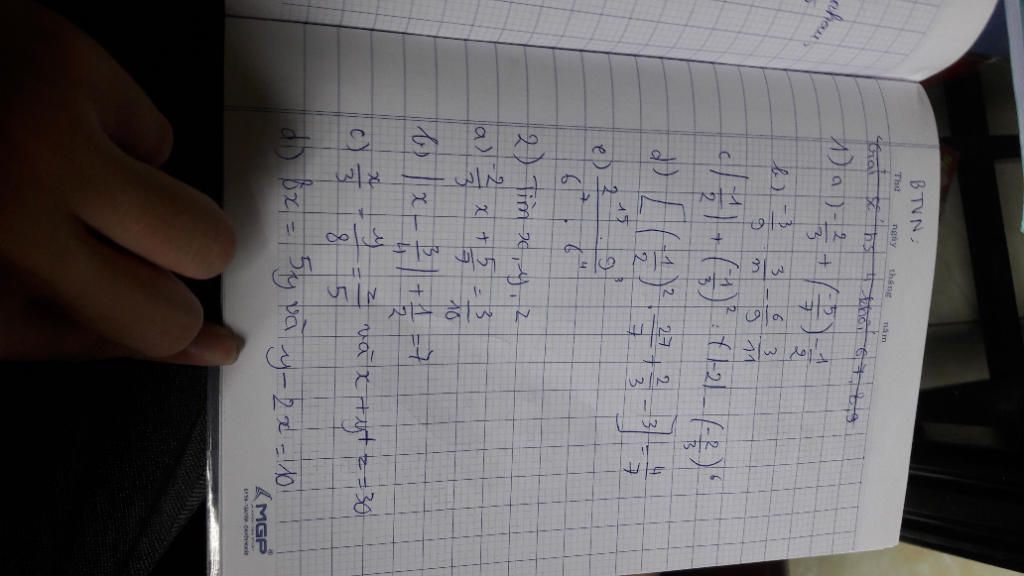 BTVN:
Thứ ngày tháng năm
1) a) -2/3 + (-5/7) - 1/2
b) -3/9 . 3/11 - 6/9 . 3/11
c) |-1/2| + (-1/3)² : |-2| - (-2/3)⁶
d) [(-1/2)² : 27/7 + 2/3 - 3] = 4/7
e) 2¹⁵ . 9³ / 6⁷ . 6⁴
2) Tìm x, y, z
a) -2/3 x + 5/7 = 3/10
b) |x - 3/4| + 1/2 = 7
c) x/3 = y/8 = z/5 và x + y + z = 30
d) 8x = 5y và y - 2x = 10
MGP